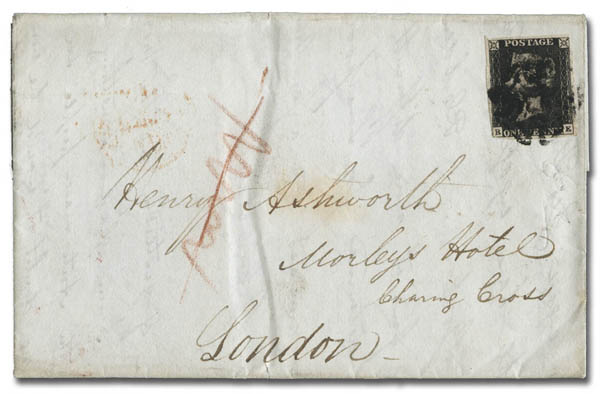 POSTAGE
ONE PENNY
Henry Ashworth
Morleys Hotel
Charing Cross
London